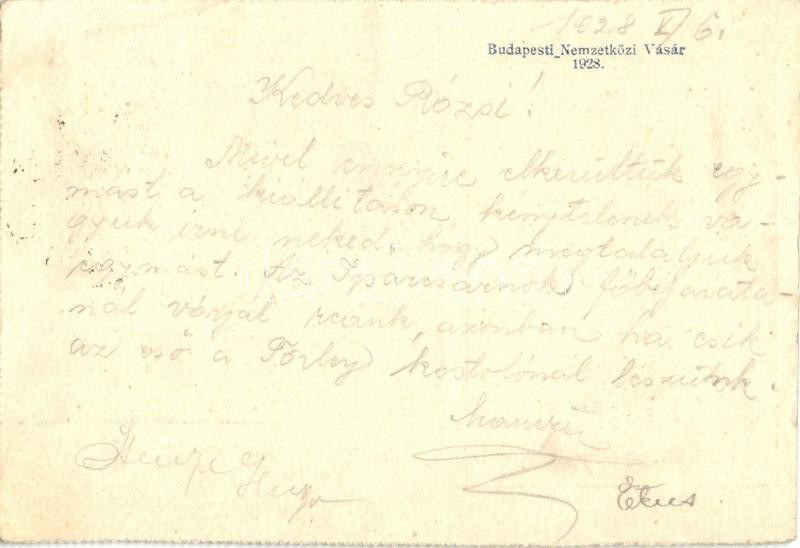 1928 V/6.
Budapesti Nemzetközi Vásár
1928.
Kedves Rózsi!
Mivel ennyire elkerültük egy-
mást a kiállitáson kénytelenek va-
gyunk irni neked, hogy megtaláljuk
egymást. Az Iparcsarnok főbejáratá-
nál várjál reánk, azonban ha esik
az eső a Törley kostolónál leszünk.
Manczi
Etus